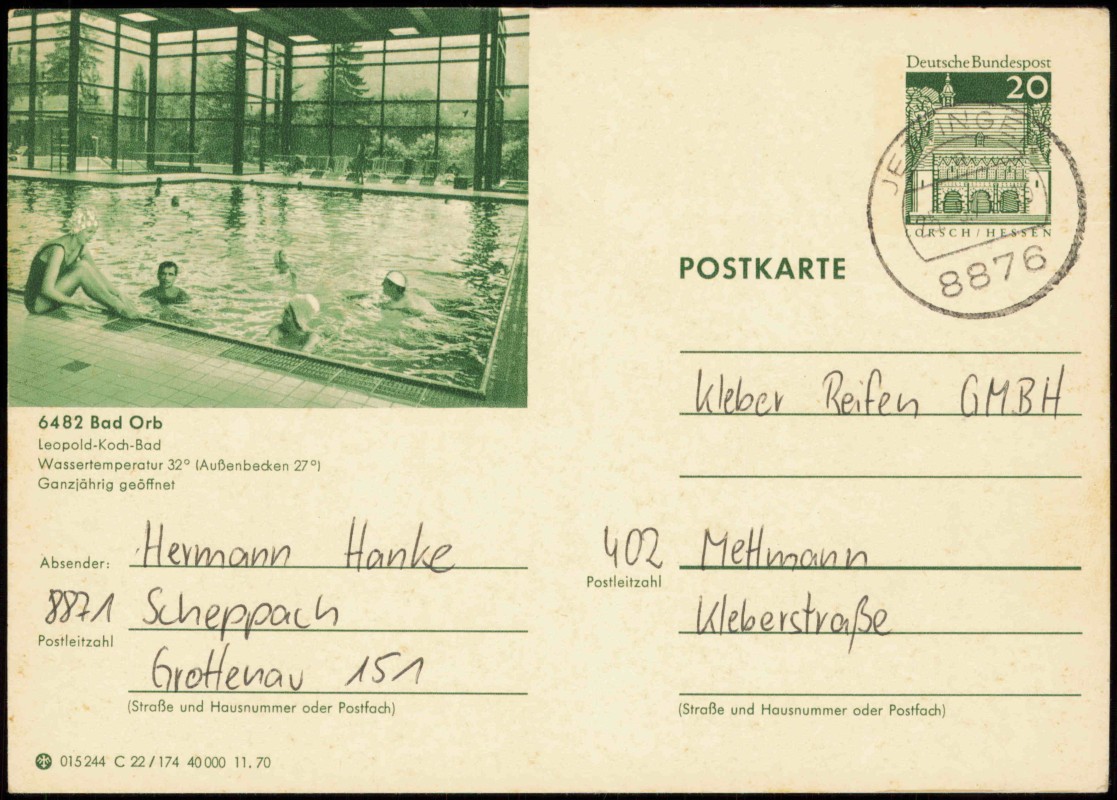 Deutsche Bundespost
20
LORSCH / HESSEN
8876
POSTKARTE
6482 Bad Orb
Leopold-Koch-Bad
Wassertemperatur 32° (Außenbecken 27°)
Ganzjährig geöffnet
Absender: Hermann Hanke
8871 Scheppach
Postleitzahl
Grottenau 151
(Straße und Hausnummer oder Postfach)
Kleber Reifen GMBH
402 Mettmann
Postleitzahl
Kleberstraße
(Straße und Hausnummer oder Postfach)
015244 C 22/174 40000 11.70